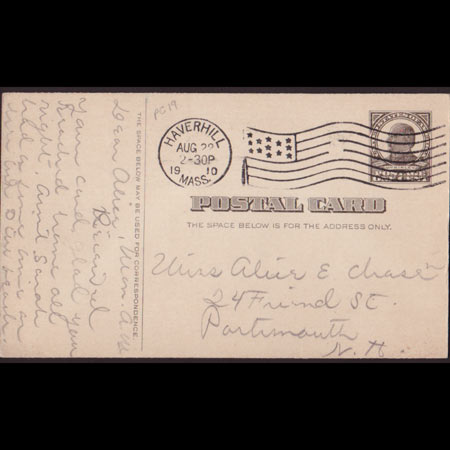 Dear Alice, Mon. Aug
Received
your card, glad you
reached home all
right. Aunt Sarah
had a fine time on
THE SPACE BELOW MAY BE USED FOR CORRESPONDENCE.
PC 19
HAVERHILL
AUG 22
2-30P
1910
MASS.
POSTAL CARD
THE SPACE BELOW IS FOR THE ADDRESS ONLY.
Miss Alice E. Chase
24 Friend St.
Portsmouth
N. H.